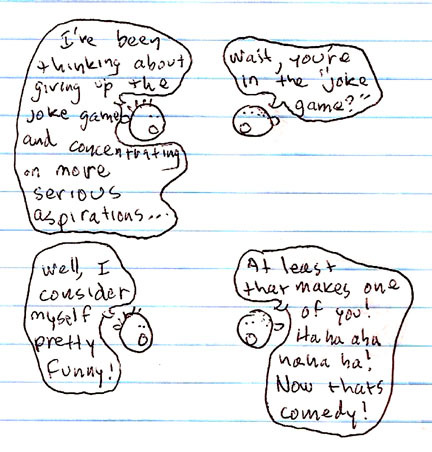 I've been
thinking about
giving up the
joke game
and concentrating
on more
serious
aspirations...
Wait, you're
in the "joke
game?"
Well, I
consider
myself
pretty
funny!
At least
that makes one
of you!
Ha ha aha
haha ha!
Now thats
comedy!